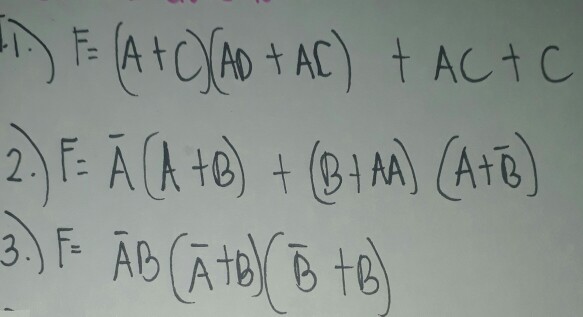 1.) F= (A+C)(AD + AC) + AC + C
2.) F= Ā(A+B) + (B+AA) (A+B̄)
3.) F= ĀB(Ā+B)(B̄+B)